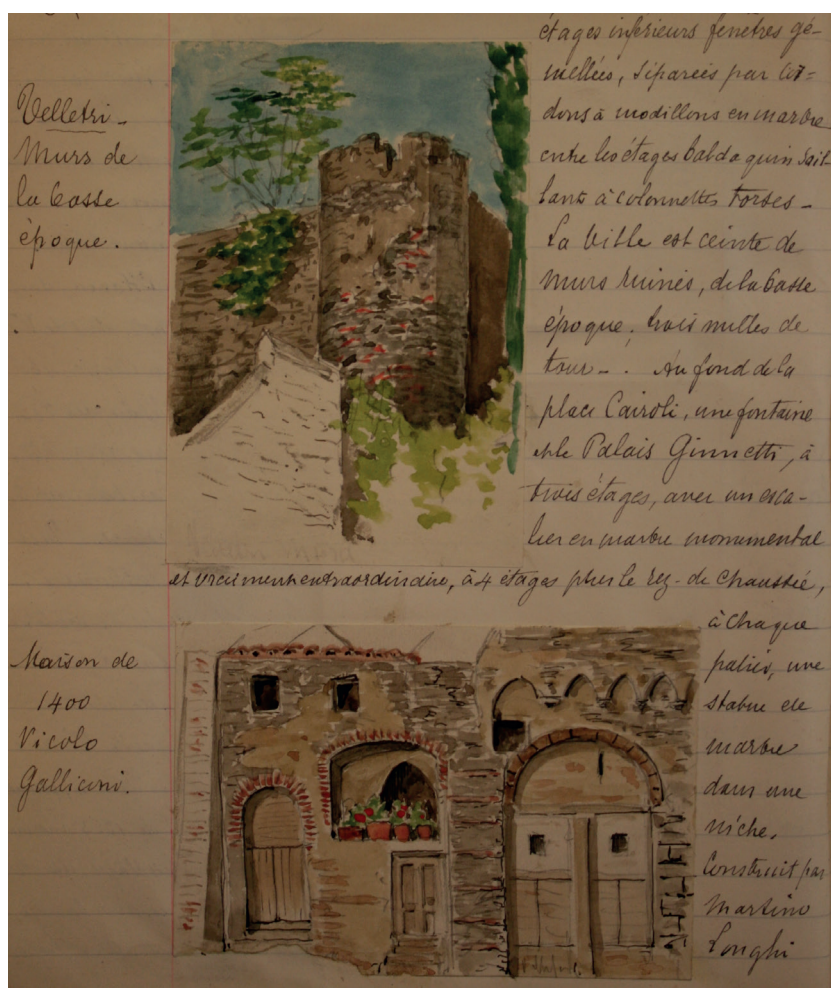 Velletri -
Murs de
la basse
époque.
étages inférieurs fenêtres gé-
mellées, séparées par cor-
dons à modillons en marbre
entre les étages baldaquin sail-
lant à colonnettes torses -
La ville est ceinte de
murs ruinés, de la basse
époque, trois milles de
tour - . Au fond de la
place Cairoli, une fontaine
et le Palais Ginnetti, à
trois étages, avec un esca-
lier en marbre monumental
et vraiment extraordinaire, à 4 étages plus le rez-de chaussée,
à chaque
palier, une
statue de
marbre
dans une
niche.
Construit par
Martino
Longhi
Maison de
1400
Vicolo